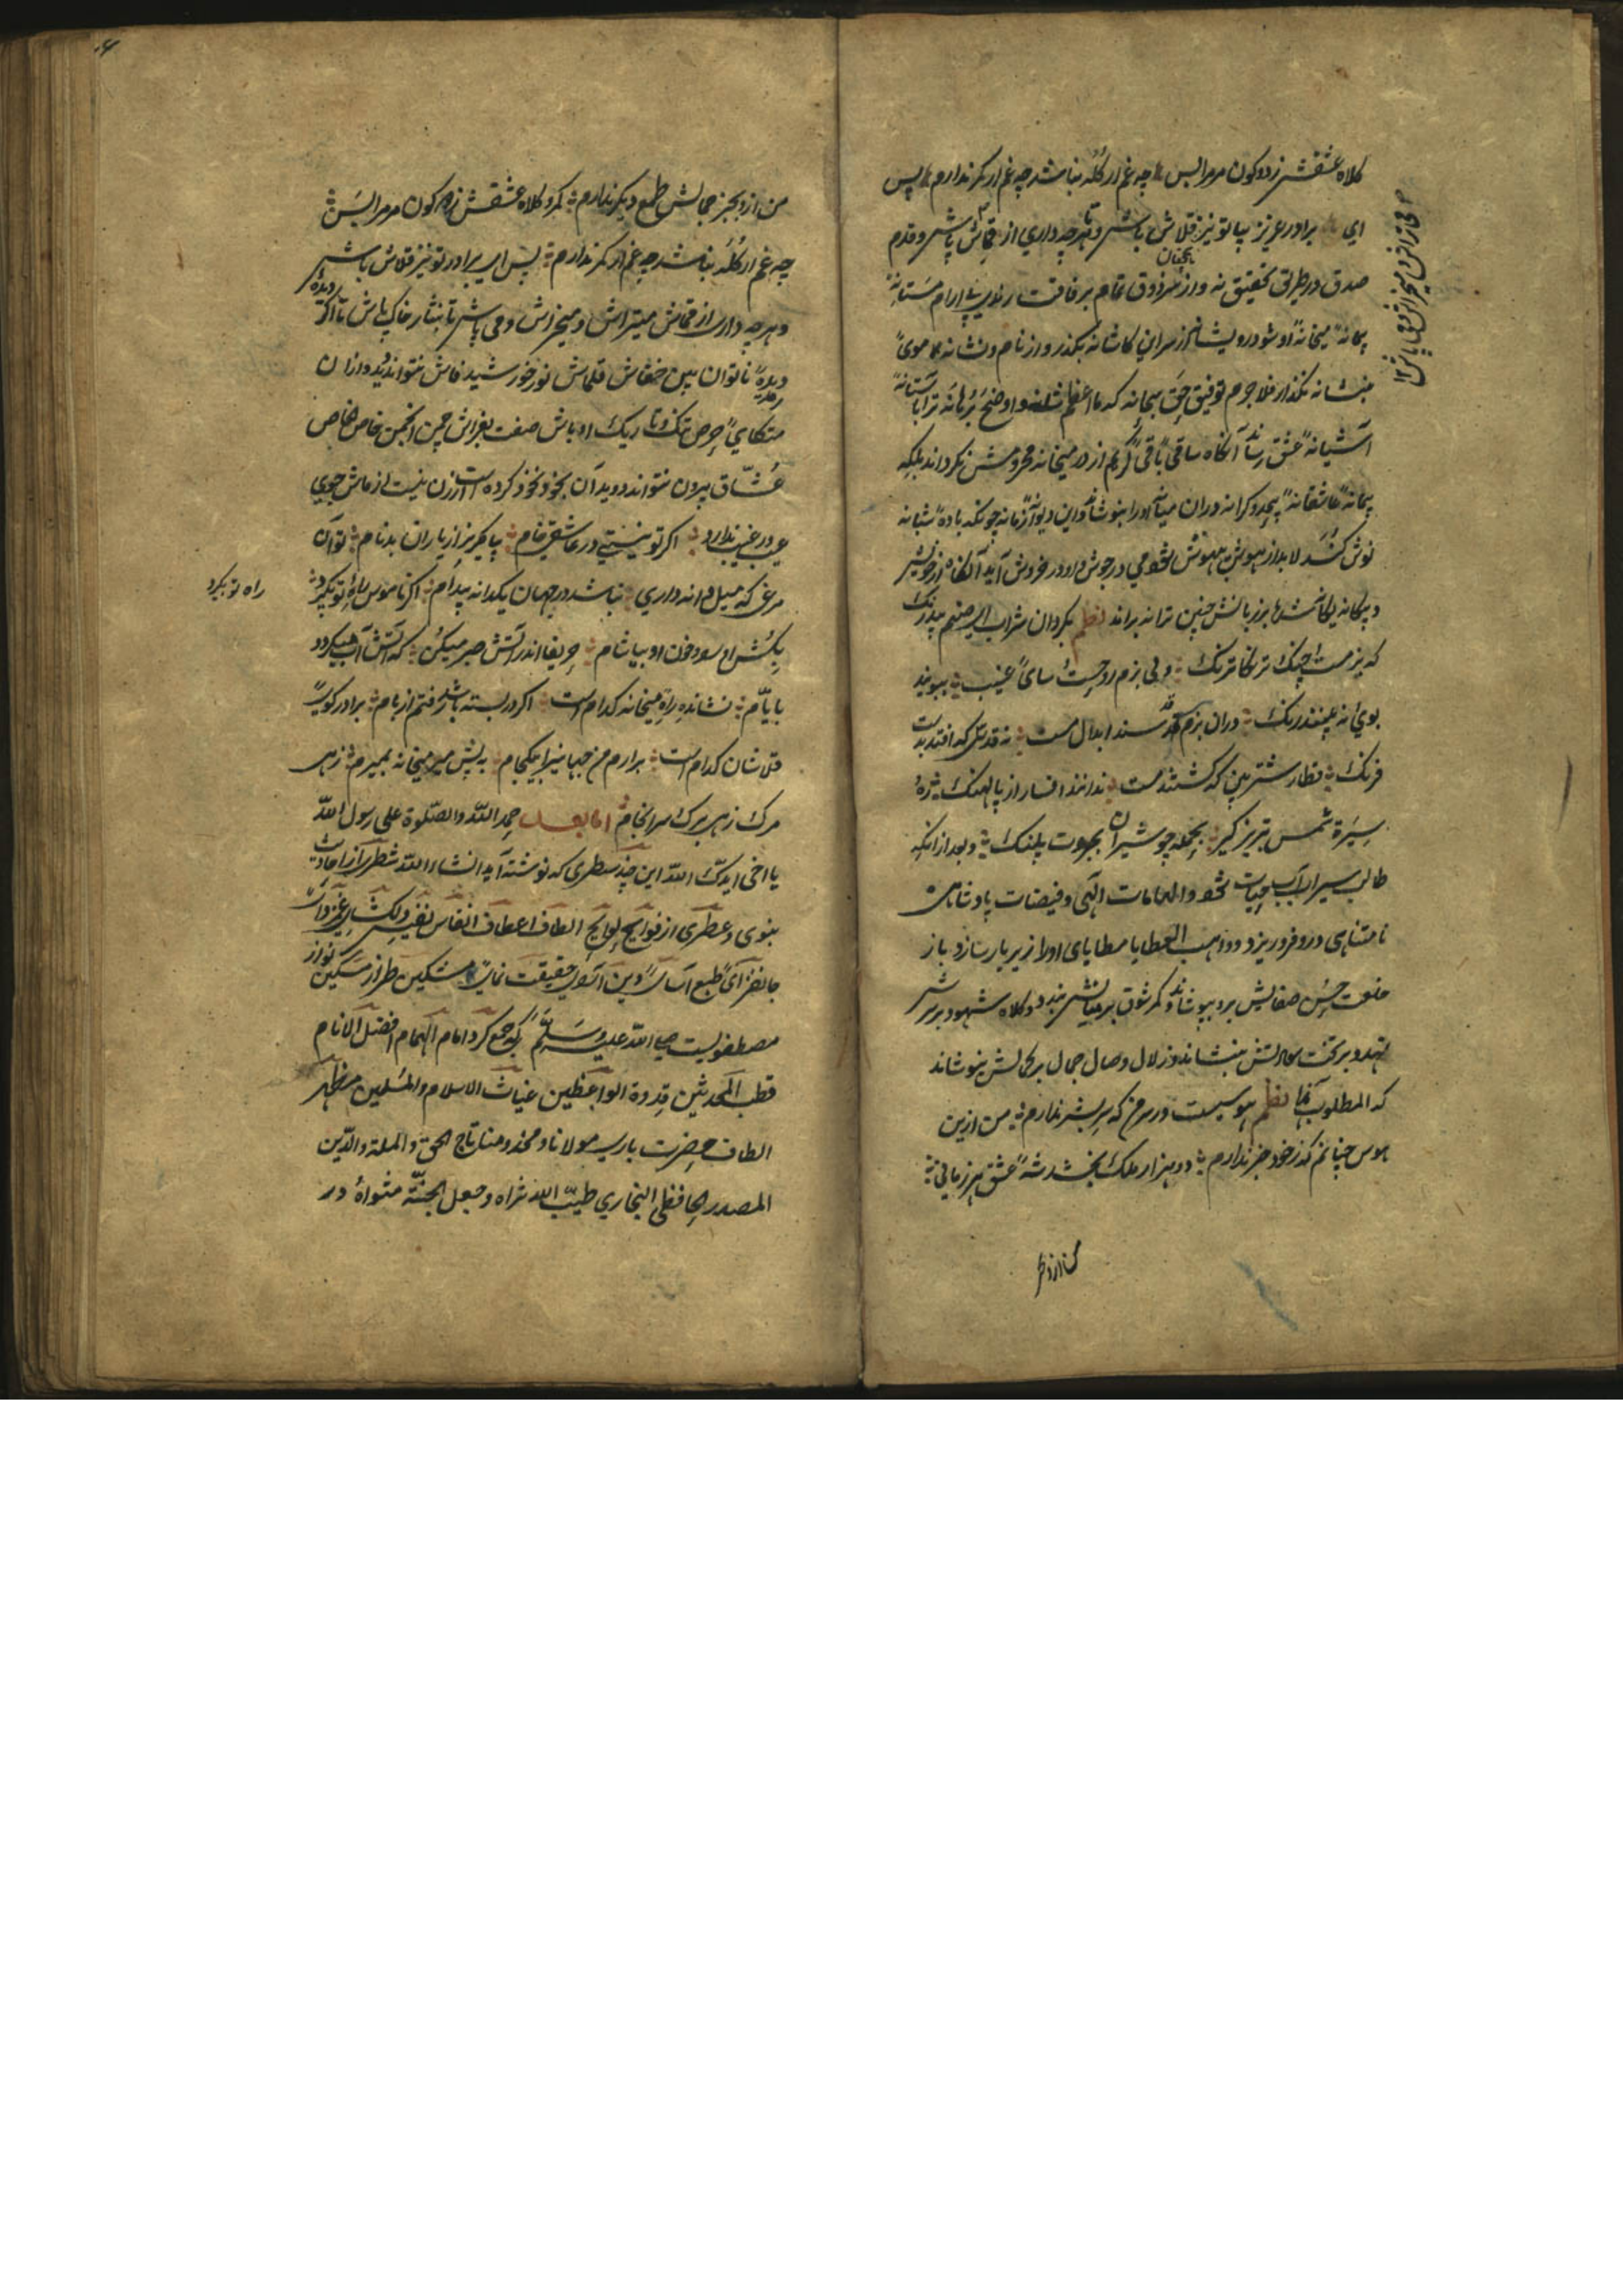 کلاه عشقش ز دو کون مر مرا بس چه غم ار کُلَه نباشد چه غم ار کمر ندارم پس
ای برادر عزیز بیا تو نیز قلاش باش و هرچه داری از قماش پاش و قدم
صدق در طریق تحقیق نه و از سر ذوق تمام برفاقت آرام مستانه
پیمانهٔ میخانهٔ او شو درویشانه از سر این کاشانه بگذر و از نام و نشانه موی
بنشانه نگذار فلاجرم توفیق حق سبحانه که ما اعظم شانه و اوضح برهانه ترا باستانهٔ
آشیانهٔ عشق رساند آنگاه ساقی باقی کریم از در میخانه محرومش نگرداند بلکه
پیمانهٔ عاشقانهٔ بیحد و کرانه دران میانه او را بنوشاند و این دیوانهٔ زمانه چونکه بادهٔ شبانه
نوش کند لابد از هوش بیهوش شود می در جوش و او در خروش آید آنگاه از خویش
و بیگانه یگانه شد بر زبانش چنین ترانه براند نظم بگردان شراب ای صنم بیدرنک
که بزمست و چنک و ترنکاترنک ولی بزم روحست و ساقی غیب ببویند
بوی و نه بینند رنک دران بزم قدسند ابدال مست نه قدسی که افتد بدست
فرنک قطار شتر بین که گشتند مست ندانند افسار از پالهنک ز
سیرة شمس تبریز گیر بحمله چو شیران بجرات پلنک و بعد از آنکه
طالب سیراب آب حیات شود والهامات الهی و فیضات پادشاهی
نامتناهی درو فرو ریزد و واهب العطایا مطایای او را زیر بار سازد باز
خلعت حسن صفایش برو بپوشاند و کمر شوق بر میانش بندد و کلاه شهود بر سرش
نهد و بر تخت سعادتش بنشاند و زلال وصال جمال بر کمالش بنوشاند
که المطلوب نظم هوسیست در سر من که سر بشر ندارم من ازین
هوس چنانم که ز خود خبر ندارم دو هزار ملک بخشد شه عشق هر زمانی
من ازو بجز جمالش طمع دیگر ندارم کمر و کلاه عشقش ز دو کون مر مرا بس
چه غم ار کُلَه نباشد چه غم ار کمر ندارم پس ای برادر تو نیز قلاش باش
و هرچه داری از قماش میتراش و میخراش و می پاش تا بنثار خاک پاش تا آنکه دیدهٔ
دیدهٔ ناتوان بین خفاش قلماش نور خورشید فاش نتواند دید و ازان
متکای حرص تنک و تاریک اوباش صفت بفراش چمن انجمن خاص خاص
عُشّاق بیرون نتواند دوید آن بخود بخود کرده است ازین نیست از ماش جوی
عیب در غیب ندارد اگر تو نیستی در عاشقی خام بیا بگریز از یاران بدنام تو آن
مرغی که میل دانه داری نباشد در جهان یکدانه بیدام اگر ناموس راه تو بگیرد
راه تو بگیرد
بکُش او را و خون او بیاشام حریفا اندر آتش صبر میکن که آتش آب میگردد
بایّام نشانده راه میخانه کدامست اگر در بسته باشد رفتم از بام برادر کوی
قلاشان کدام است برارم من جهانی را بیکجام به پیش میر میخانه بمیرم زهی
مرک زهی برک سرانجام اما بعد حمد الله والصلوة علی رسول الله
یا اخی ایدک الله این چند سطری که نوشته آید انشاء الله شطری از احادیث
نبوی و عطری از فوایح لوایح الطاف اعطاف انفاس نفیس
جانفزای طبع آسای و دین آرای حقیقت نمای مشکین طراز مسکین نواز
مصطفویست صلی الله علیه وسلم که جمع کرد امام الهمام افضل الانام
قطب المحدثین قدوة الواعظین غیاث الاسلام والمسلمین مظهر
الطاف حضرت باری مولانا و مخدومنا تاج الحق والملة والدین
المصدر الحافظی البخاری طیّب الله ثراه وجعل الجنّة مثواهُ در